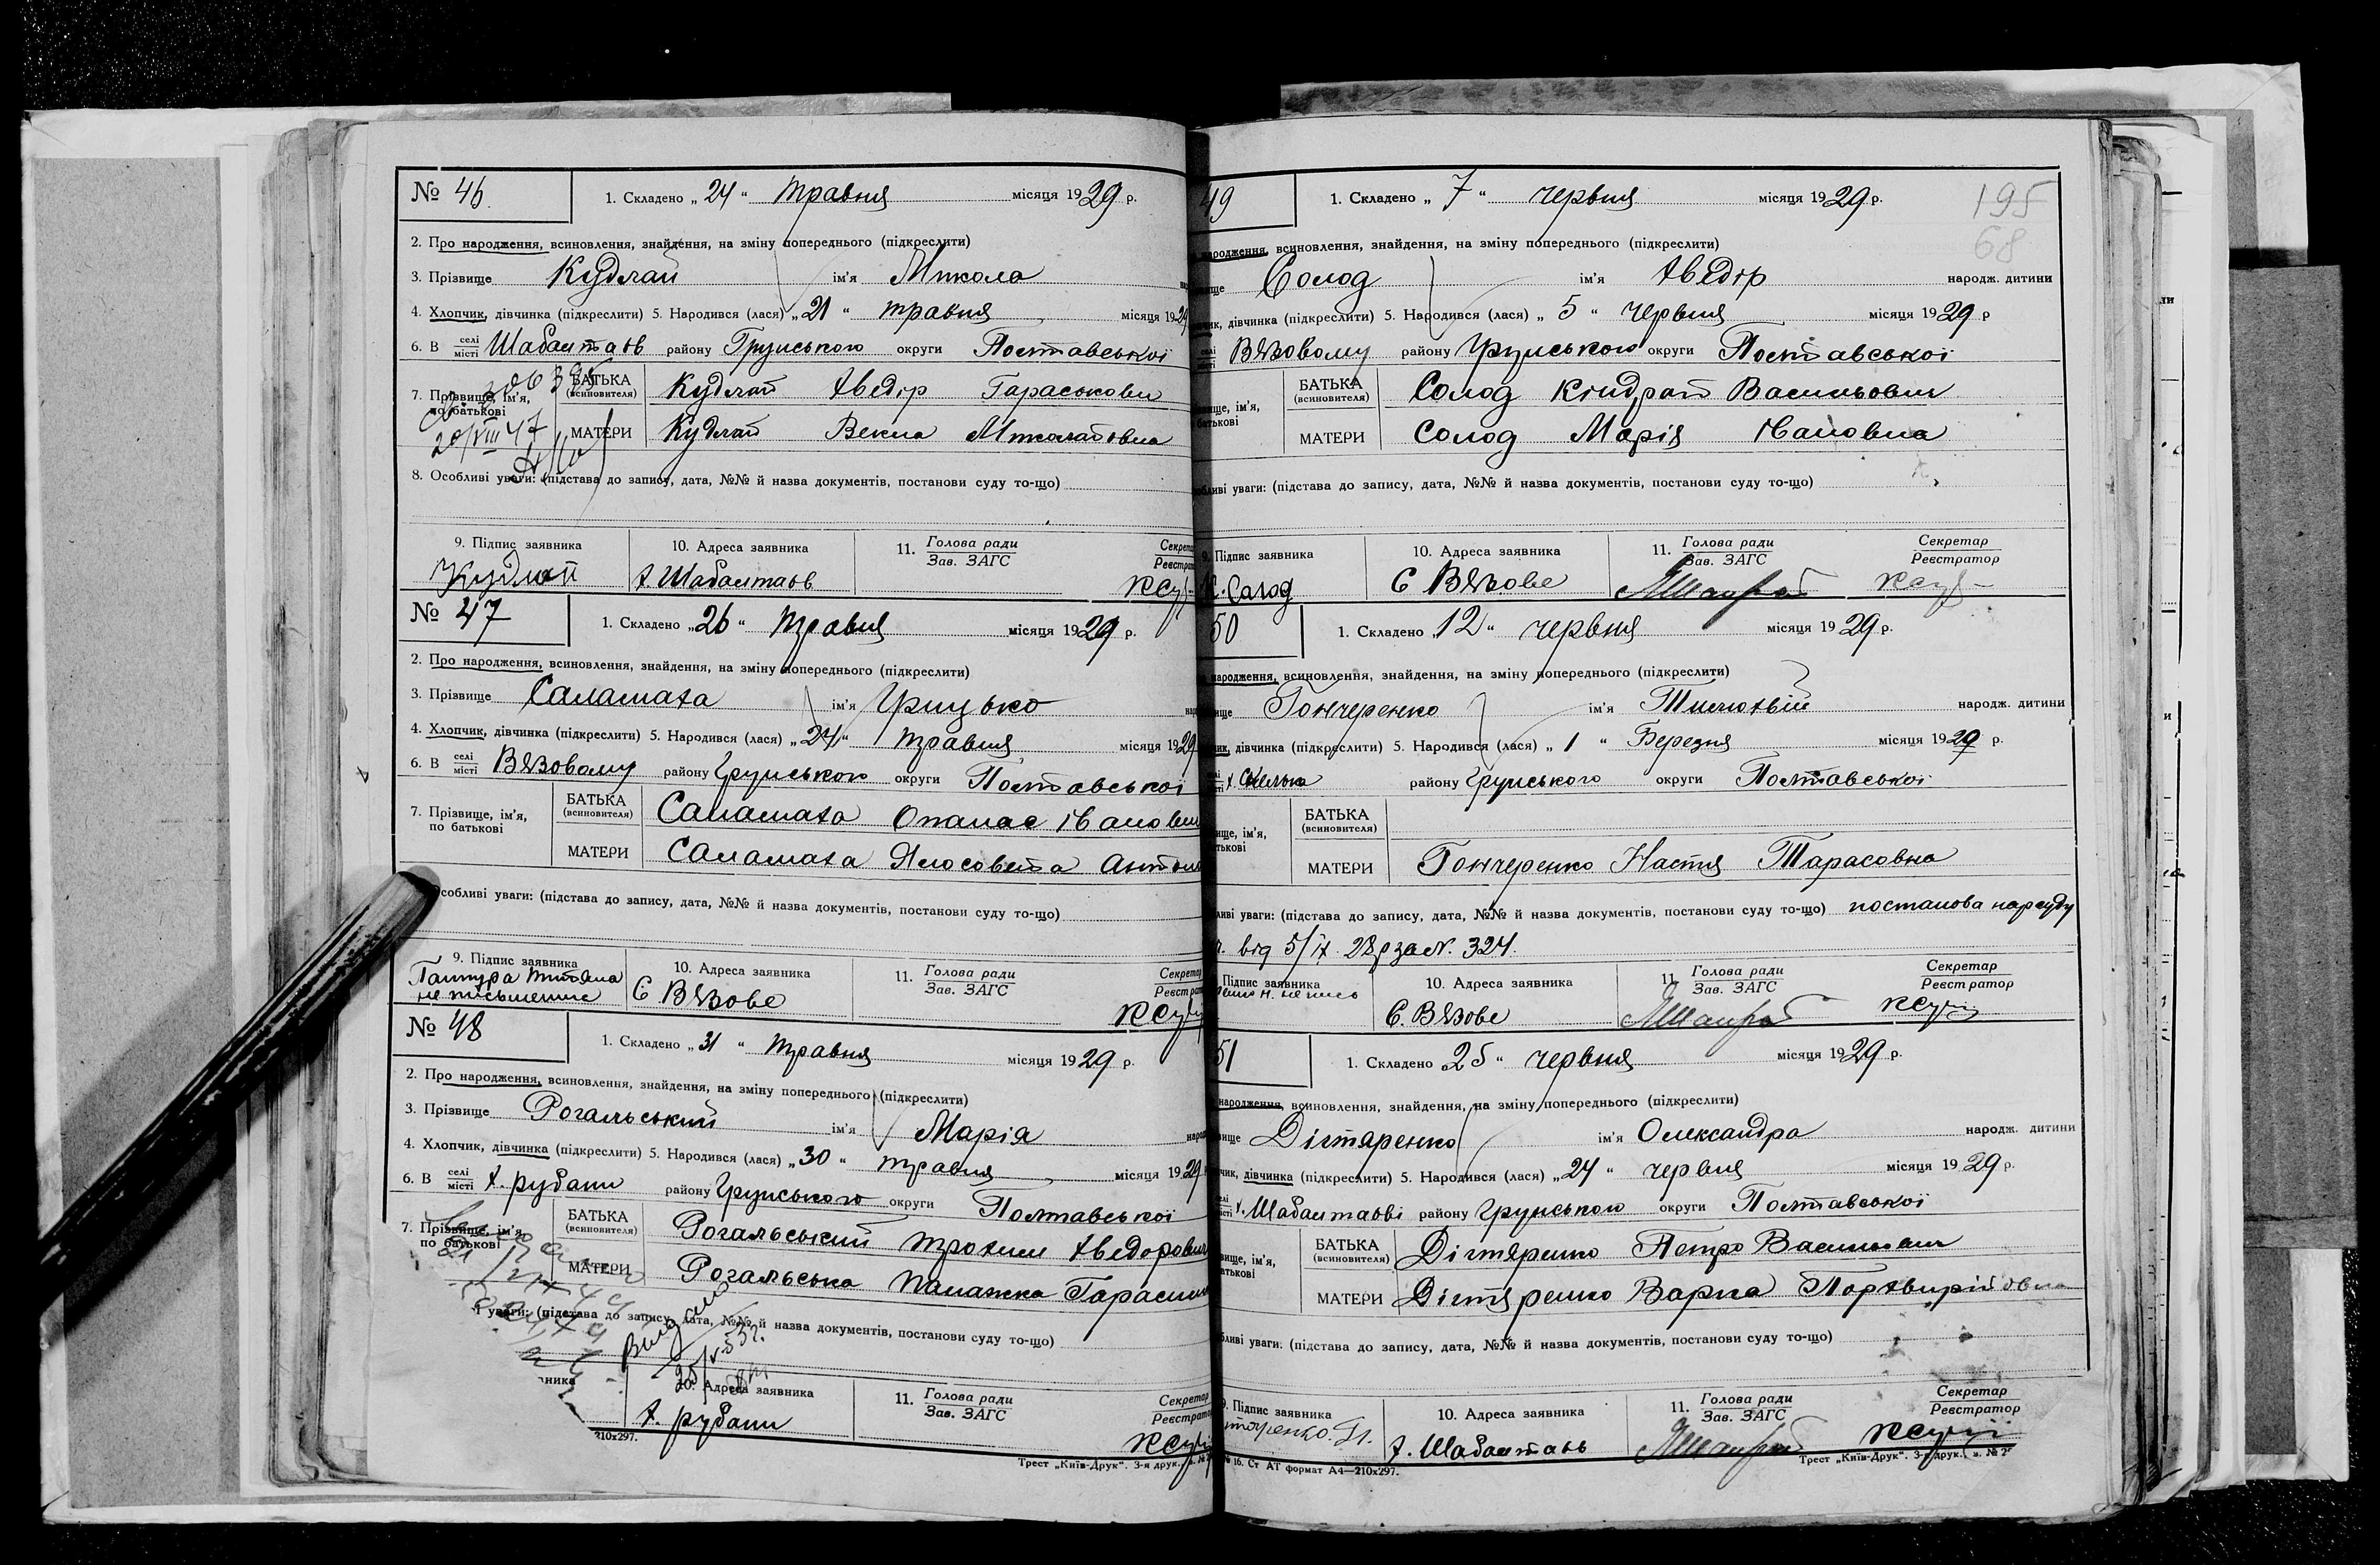 № 46
1. Складено „ 24 “ травня місяця 1929 р.
2. Про народження, всиновлення, знайдення, на зміну попереднього (підкреслити)
3. Прізвище Кудлай ім'я Микола
4. Хлопчик, дівчинка (підкреслити) 5. Народився (лася) „ 21 “ травня місяця 1929
6. В селі місті Шабалтаїв району Грунського округи Полтавської
7. Прізвище, ім'я, по батькові
БАТЬКА (всиновителя) Кудлай Хведір Гараськович
20/VIII 47
МАТЕРИ Кудлай Векла Миколаївна
8. Особливі уваги: (підстава до запису, дата, №№ й назва документів, постанови суду то-що)
9. Підпис заявника 10. Адреса заявника 11. Голова ради Зав. ЗАГС
Кудлай х Шабалтаїв
№ 47
1. Складено „ 26 “ травня місяця 1929 р.
2. Про народження, всиновлення, знайдення, на зміну попереднього (підкреслити)
3. Прізвище Саламаха ім'я Грицько
4. Хлопчик, дівчинка (підкреслити) 5. Народився (лася) „ 24 “ травня місяця 1929
6. В селі місті Вязовому району Грунського округи Полтавської
7. Прізвище, ім'я, по батькові
БАТЬКА (всиновителя) Саламаха Опанас Іванович
МАТЕРИ Саламаха Ялосовета Антон
собливі уваги: (підстава до запису, дата, №№ й назва документів, постанови суду то-що)
9. Підпис заявника 10. Адреса заявника 11. Голова ради Зав. ЗАГС
не письменна С Вязове
№ 48
1. Складено „ 31 “ травня місяця 1929 р.
2. Про народження, всиновлення, знайдення, на зміну попереднього (підкреслити)
3. Прізвище Рогальський ім'я Марія
4. Хлопчик, дівчинка (підкреслити) 5. Народився (лася) „ 30 “ травня місяця 1929
6. В селі місті х. рубани району Грунського округи Полтавської
7. Прізвище, ім'я, по батькові
БАТЬКА (всиновителя) Рогальський трохим Хведорович
МАТЕРИ Рогальська Палажка Гарасим
уваги: (підстава до запису, дата, №№ й назва документів, постанови суду то-що)
10. Адреса заявника 11. Голова ради Зав. ЗАГС
х. рубани
210х297.
Трест „Київ-Друк“. 3-я друк.
49
1. Складено „ 7 “ червня місяця 1929 р.
195
68
народження, всиновлення, знайдення, на зміну попереднього (підкреслити)
Солод ім'я Хведір народж. дитини
дівчинка (підкреслити) 5. Народився (лася) „ 5 “ червня місяця 1929 р
Вязовому району Грунського округи Полтавської
БАТЬКА (всиновителя) Солод Кіндрат Васильович
МАТЕРИ Солод Марія Івановна
уваги: (підстава до запису, дата, №№ й назва документів, постанови суду то-що)
9. Підпис заявника 10. Адреса заявника 11. Голова ради Зав. ЗАГС Секретар Реєстратор
К. Солод С Вязове
50
1. Складено „ 12 “ червня місяця 1929 р.
народження, всиновлення, знайдення, на зміну попереднього (підкреслити)
Гончеренко ім'я Тимохвій народж. дитини
дівчинка (підкреслити) 5. Народився (лася) „ 1 “ Березня місяця 1929 р.
району Грунського округи Полтавської
БАТЬКА (всиновителя)
МАТЕРИ Гончеренко Настя Тарасовна
уваги: (підстава до запису, дата, №№ й назва документів, постанови суду то-що) постанова нарсуду
від 5/IX 28р за N. 324.
Підпис заявника 10. Адреса заявника 11. Голова ради Зав. ЗАГС Секретар Реєстратор
С. Вязове
51
1. Складено „ 25 “ червня місяця 1929 р.
народження, всиновлення, знайдення, на зміну попереднього (підкреслити)
Дігтяренко ім'я Олександра народж. дитини
дівчинка (підкреслити) 5. Народився (лася) „ 24 “ червня місяця 1929 р.
х. Шабалтаїві району Грунського округи Полтавської
БАТЬКА (всиновителя) Дігтяренко Петро Васильович
МАТЕРИ Дігтяренко Варка Порхвирійовна
уваги: (підстава до запису, дата, №№ й назва документів, постанови суду то-що)
9. Підпис заявника 10. Адреса заявника 11. Голова ради Зав. ЗАГС Секретар Реєстратор
х. Шабалтаїв
№ 16. Ст АТ формат А4—210х297.
Трест „Київ-Друк“. 3-я друк.